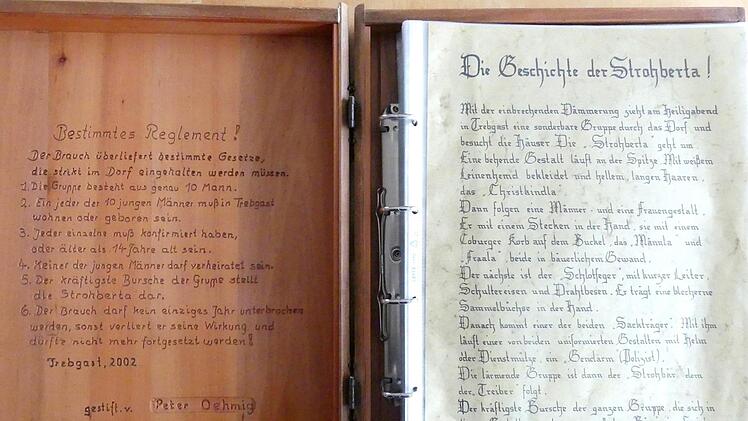 Bestimmtes Reglement!
Der Brauch überliefert bestimmte Gesetze,
die strikt im Dorf eingehalten werden müssen.
1. Die Gruppe besteht aus genau 10 Mann.
2. Ein jeder der 10 jungen Männer muß in Trebgast
wohnen oder geboren sein.
3. Jeder einzelne muß konfirmiert haben,
oder älter als 14 Jahre alt sein.
4. Keiner der jungen Männer darf verheiratet sein.
5. Der kräftigste Bursche der Gruppe stellt
die Strohberta dar.
6. Der Brauch darf kein einziges Jahr unterbrochen
werden, sonst verliert er seine Wirkung und
dürfte nicht mehr fortgesetzt werden!
Trebgast, 2002
gestift. v. Peter Oehmig
Die Geschichte der Strohberta!
Mit der einbrechenden Dämmerung zieht am Heiligabend
in Trebgast eine sonderbare Gruppe durch das Dorf und
besucht die Häuser. Die „Strohberta" geht um.
Eine behende Gestalt läuft an der Spitze. Mit weißem
Leinenhemd bekleidet und hellem, langen Haaren,
das „Christkindla".
Dann folgen eine Männer- und eine Frauengestalt.
Er mit einem Stecken in der Hand, sie mit einem
Coburger Korb auf dem Buckel, das „Männla" und
„Fraala", beide in bäuerlichem Gewand.
Der nächste ist der „Schlotfeger", mit kurzer Leiter,
Schultereisen und Drahtbesen. Er trägt eine blecherne
Sammelbüchse in der Hand.
Danach kommt einer der beiden „Sackträger". Mit ihm
läuft einer von beiden uniformierten Gestalten mit Helm
oder Dienstmütze, ein „Gendarm" (Polizist).
Die lärmende Gruppe ist dann der „Strohbär", dem
der „Treiber" folgt.
Der kräftigste Bursche der ganzen Gruppe, die sich in